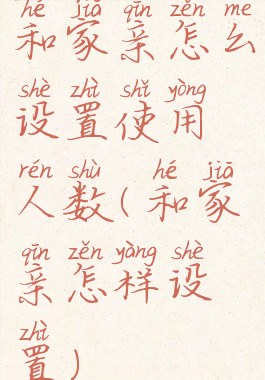 hé jiā qīn zěn me
和家亲怎么
shè zhì shǐ yòng
设置使用
rén shù hé jiā
人数(和家
qīn zěn yàng shè
亲怎样设
zhì
置)